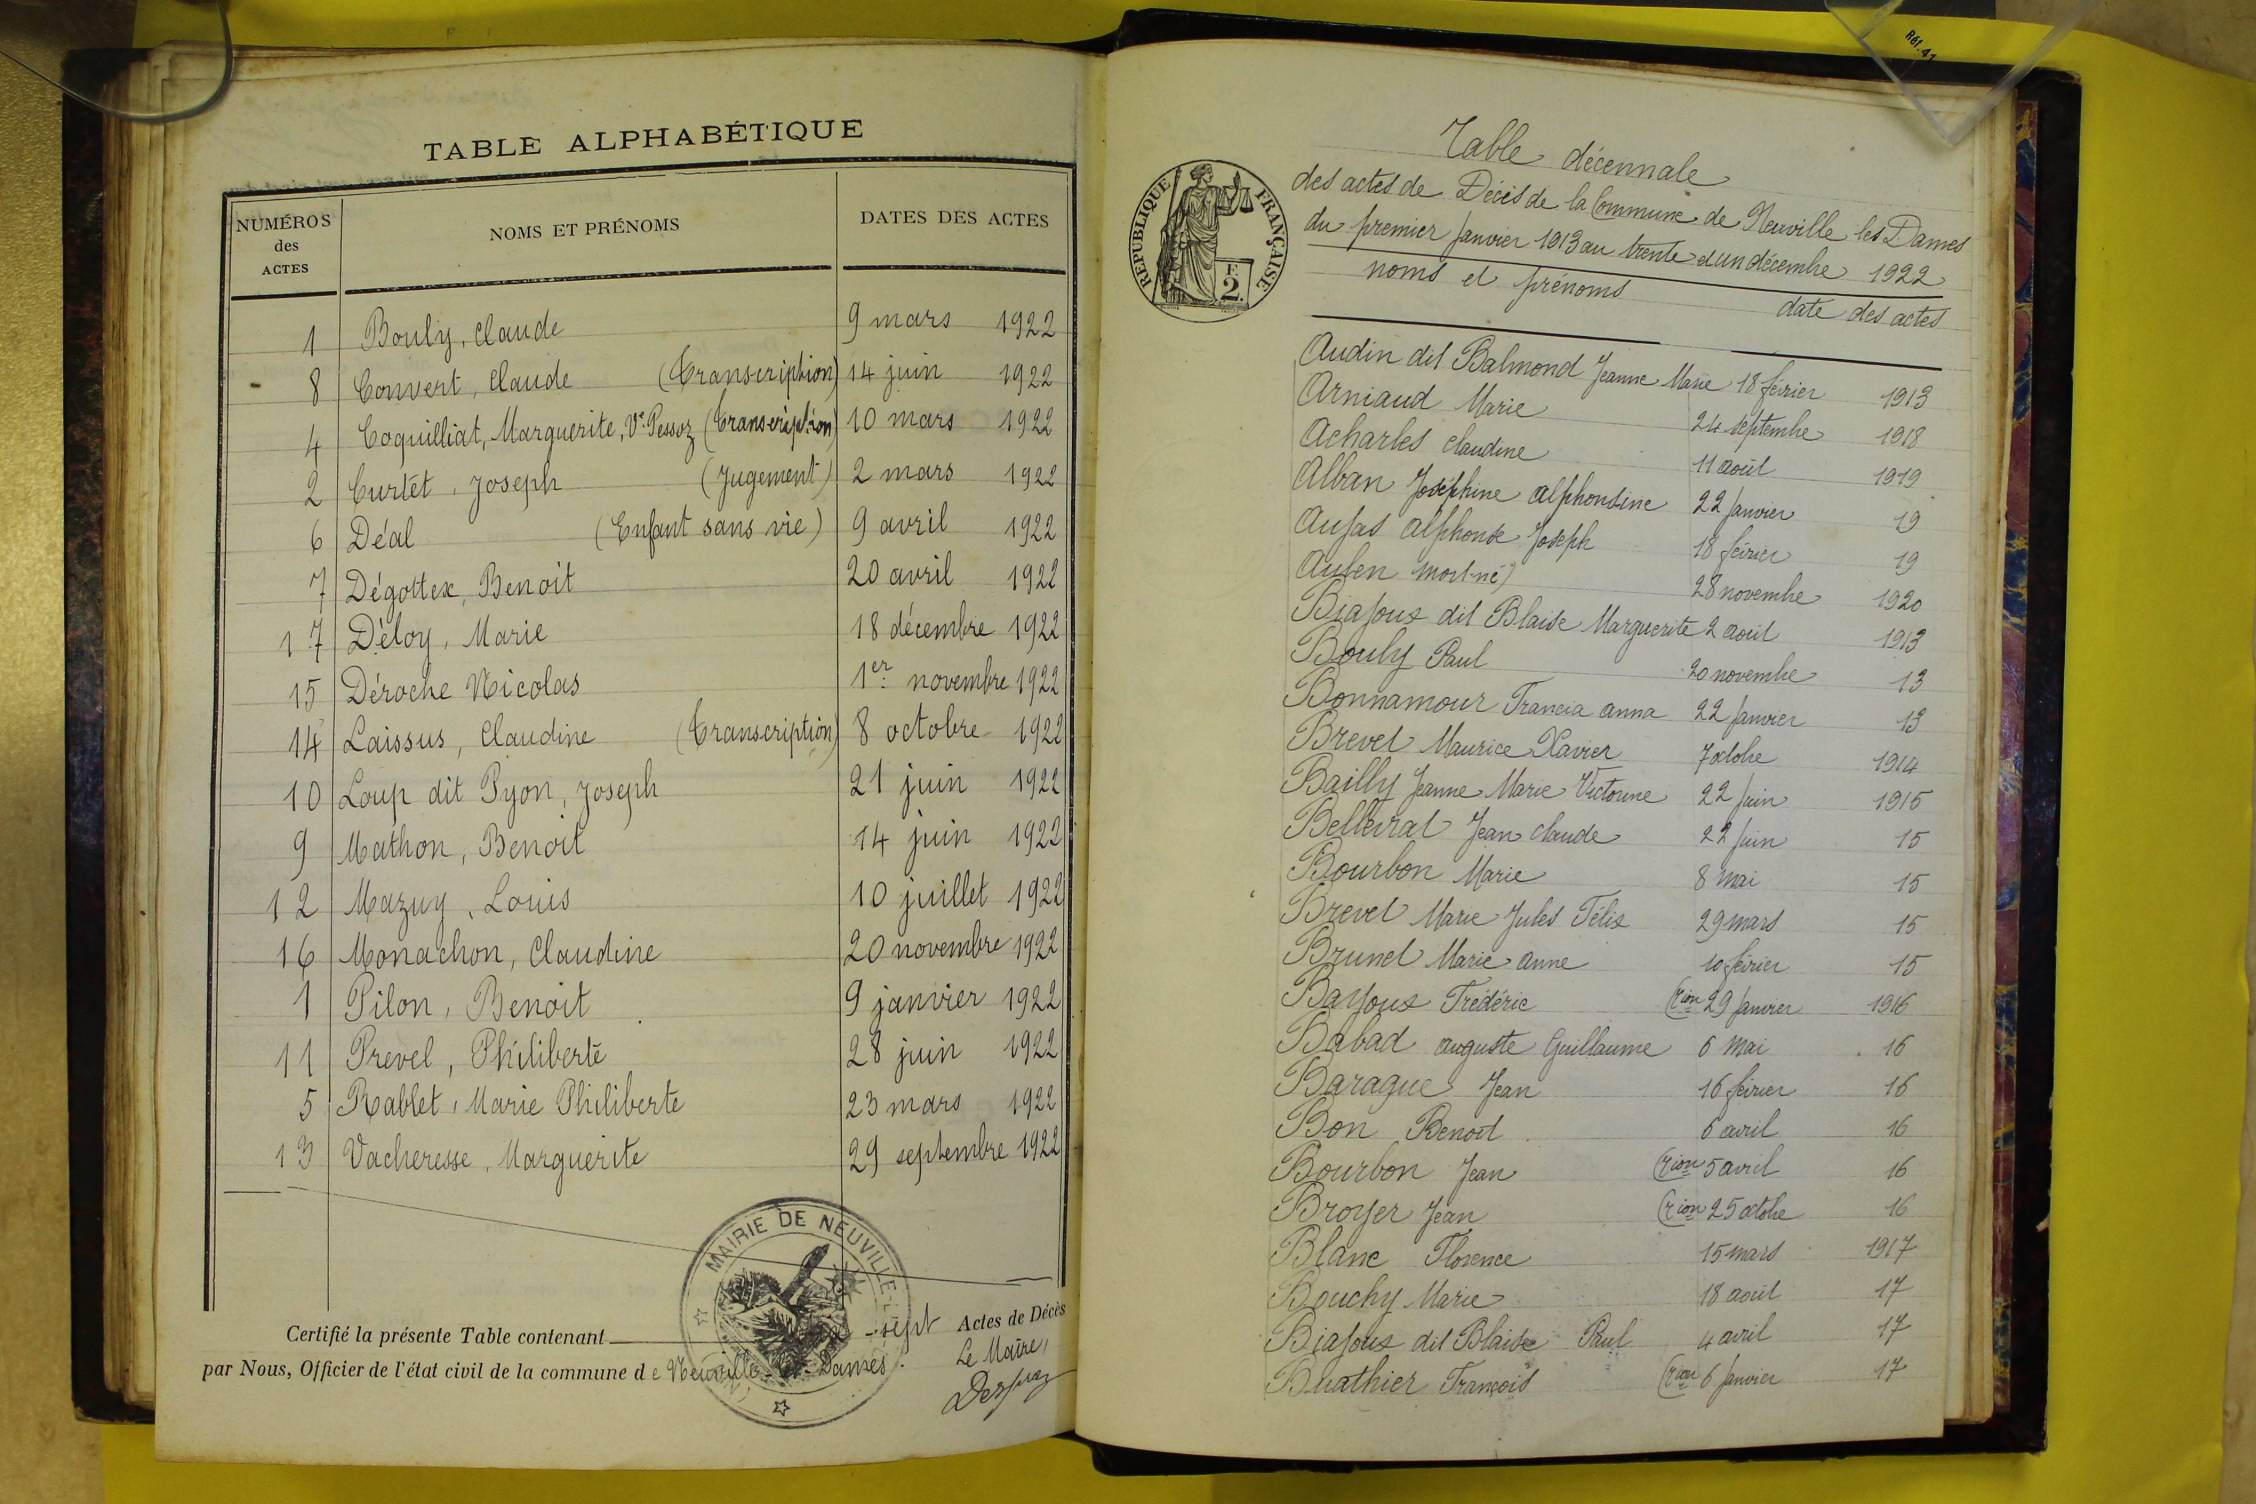 TABLE ALPHABÉTIQUE
NUMÉROS des ACTES NOMS ET PRÉNOMS DATES DES ACTES
1 Bouly, Claude 9 mars 1922
8 Convert, Claude (Transcription) 14 juin 1922
4 Coquilliat, Marguerite, Ve Pessoz (Transcription) 10 mars 1922
2 Curtet, Joseph (Jugement) 2 mars 1922
6 Déal (Enfant sans vie) 9 avril 1922
7 Dégottex, Benoit 20 avril 1922
17 Déloy, Marie 18 décembre 1922
15 Déroche Nicolas 1er novembre 1922
14 Laissus, Claudine (Transcription) 8 octobre 1922
10 Loup dit Pyon, Joseph 21 juin 1922
9 Mathon, Benoit 14 juin 1922
12 Mazuy, Louis 10 juillet 1922
16 Monachon, Claudine 20 novembre 1922
1 Pilon, Benoit 9 janvier 1922
11 Prevel, Philiberte 28 juin 1922
5 Rablet, Marie Philiberte 23 mars 1922
13 Vacheresse, Marguerite 29 septembre 1922
MAIRIE DE NEUVILLE
Certifié la présente Table contenant -sept Actes de Décès
par Nous, Officier de l'état civil de la commune de Neuville-les-Dames.
Le Maire,
Réf. 41
RÉPUBLIQUE FRANÇAISE
F 2.
Table décennale
des actes de Décès de la Commune de Neuville les Dames
du premier Janvier 1913 au trente et un décembre 1922
noms et prénoms date des actes
Audin dit Balmond Jeanne Marie 18 février 1913
Arniaud Marie 24 septembre 1918
Acharles Claudine 11 août 1919
Alban Joséphine Alphonsine 22 Janvier 19
Aujas Alphonse Joseph 18 février 19
Aulen mort-né) 28 novembre 1920
Biajoux dit Blaise Marguerite 2 août 1913
Bouly Paul 20 novembre 13
Bonnamour Francia Anna 22 Janvier 13
Brevet Maurice Xavier 7 octobre 1914
Bailly Jeanne Marie Victorine 22 Juin 1915
Bellevrat Jean Claude 22 Juin 15
Bourbon Marie 8 Mai 15
Brevet Marie Jules Félix 29 mars 15
Brunet Marie Anne 10 février 15
Bayoux Frédéric (rion 29 Janvier 1916
Babad Auguste Guillaume 6 Mai 16
Barague Jean 16 février 16
Bon Benoit 6 avril 16
Bourbon Jean (rion 5 avril 16
Broyer Jean (rion 25 octobre 16
Blanc Florence 15 mars 1917
Bouchy Marie 18 août 17
Biajoux dit Blaise Paul 4 avril 17
Buathier François (rion 6 Janvier 17